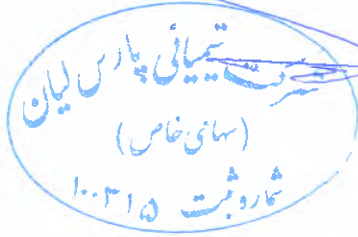 شرکت شیمیائی پارس لیان
(سهامی خاص)
شماره ثبت ۱۰۰۳۱۵